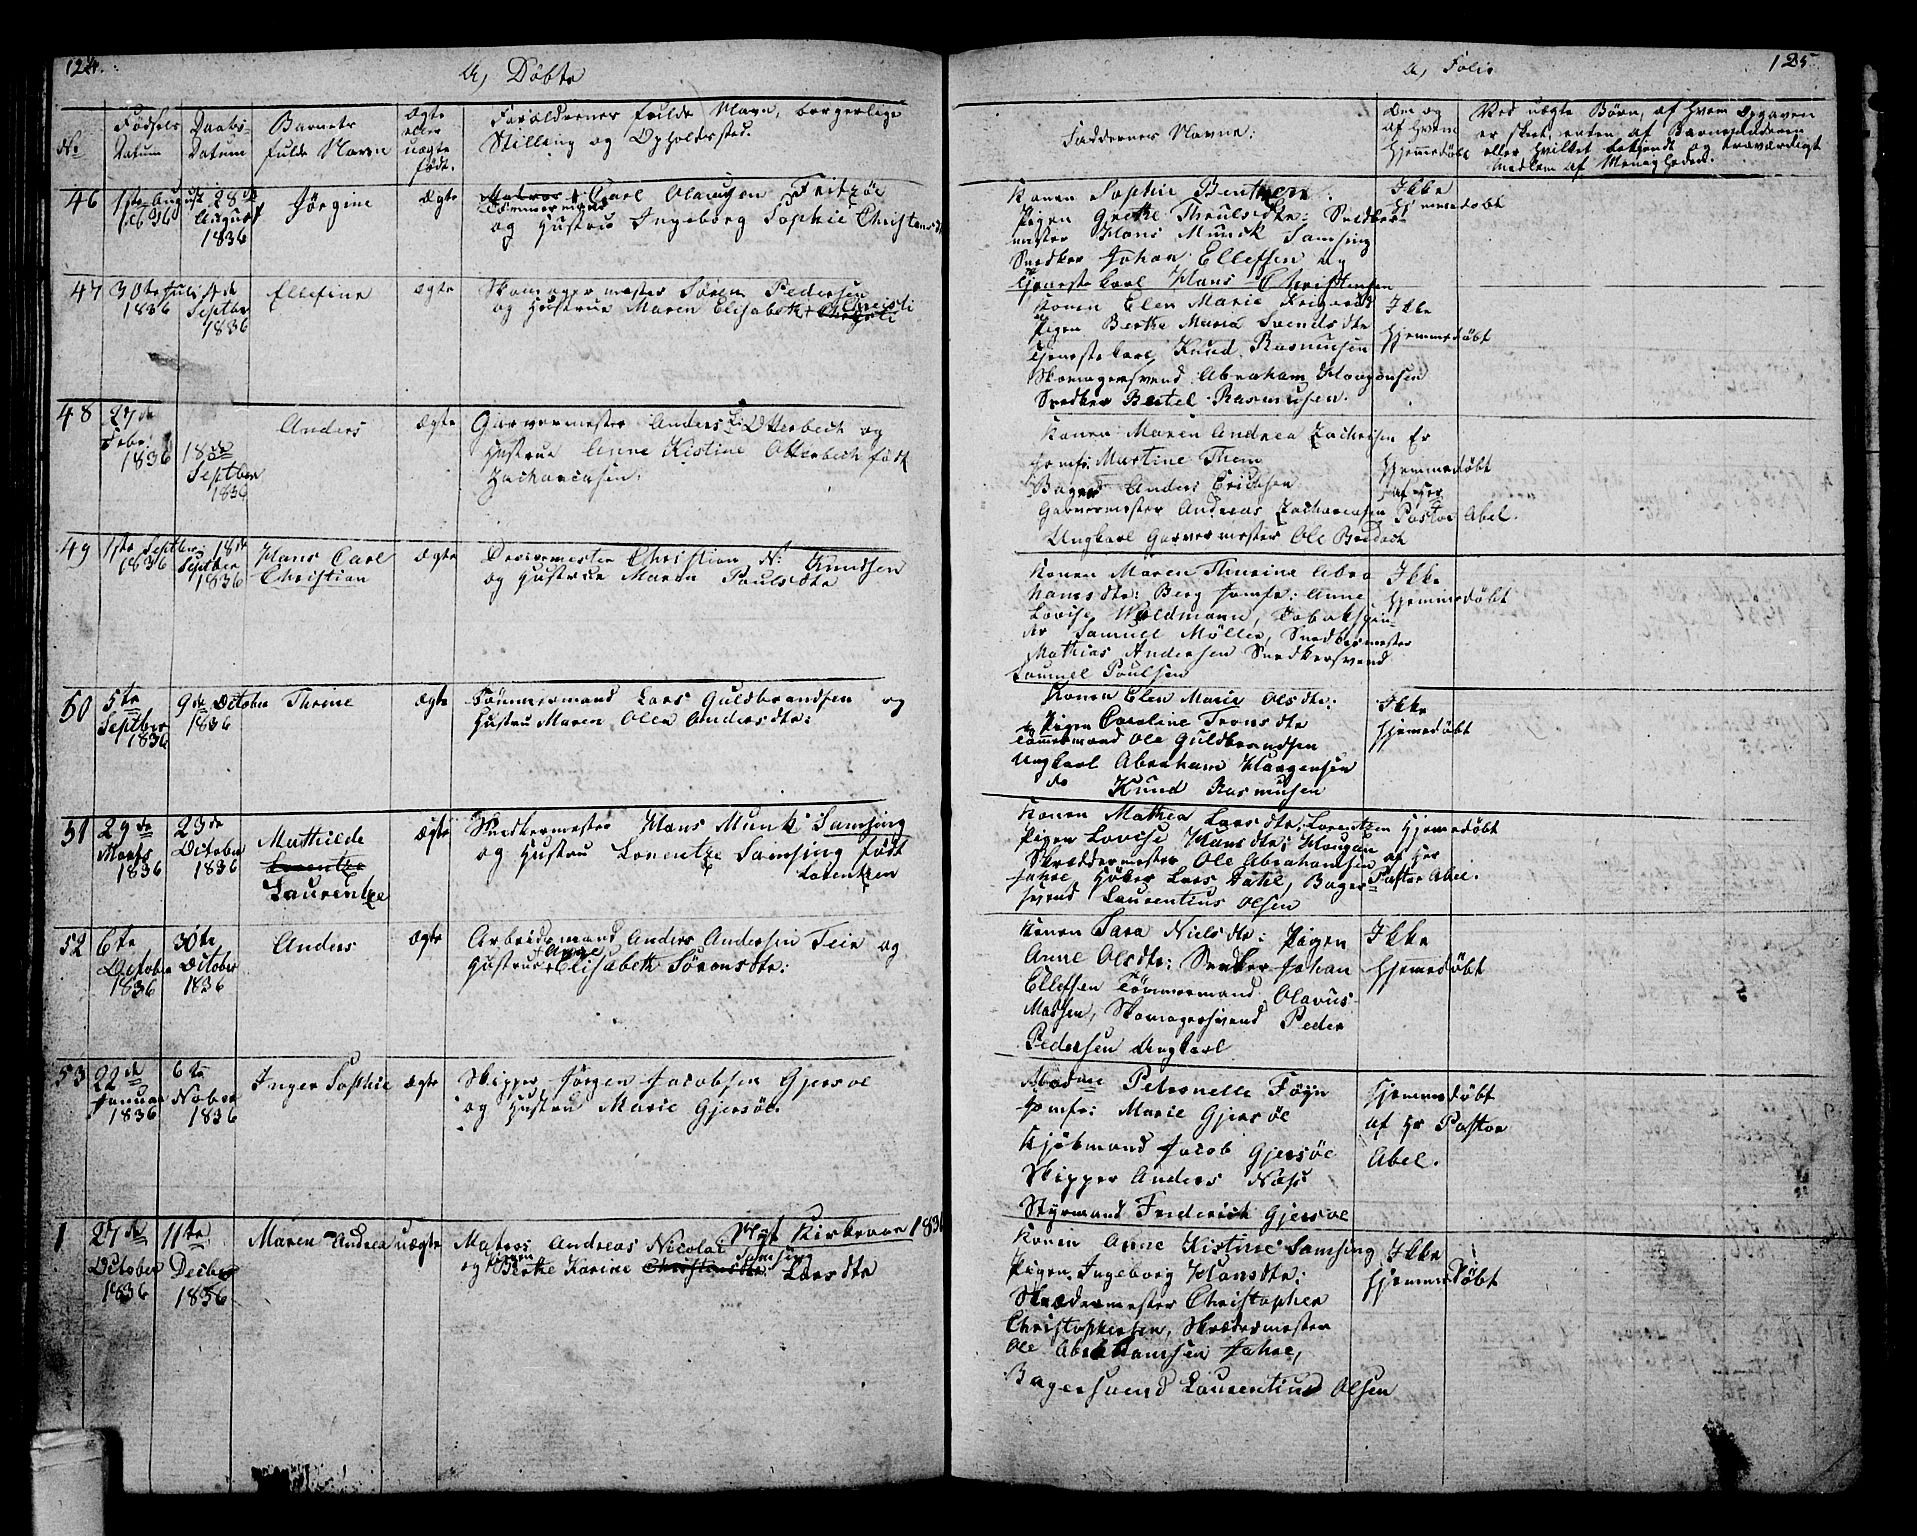 124.
a, Døbte
No.
Fødsels
Datum
Daabs-
Datum
Barnets
fulde Navn
ægte
eller
uægte
født.
Forældrenes fulde Navn, borgerlige
Stilling og Opholdssted.
46
1ste August
1836
28de
August
1836
Jørgine
ægte
Matros Carl Olausen Fritzøe
Tømmermand
og Hustru Ingeborg Sophie Christensd
47
30te Juli
1836
4de
Septbr
1836
Ellefine
ægte
Skomagermester Søren Pedersen
og Hustrue Maren Elisabeth Christi
48
27de
Febr.
1836
18de
Septbr
1836
Anders
ægte
Garvermester Anders L. Otterbech og
Hustrue Anne Kistine Otterbech født
Zachariasen.
49
1ste Septbr
1836
18de
Septber
1836
Hans Carl
Christian
ægte
Christian N. Knudsen
og Hustrue Maren Poulsdtr
50
5te
Septber
1836
9de October
1836
Thrine
ægte
Tømmermand Lars Guldbrandsen og
Hustru Maren Olea Andersdtr:
51
29de
Marts
1836
23de
October
1836
Mathilde
Lorentze
Laurentze
ægte
Snedkermester Hans Munk Samsing
og Hustru Lorentze Samsing født
Lorentzen
52
6te
October
1836
30te
October
1836
Anders
ægte
Arbeidsmand Anders Andersen Teie og
Hustrue Anne Elisabeth Sørensdtr:
53
22de
Januar
1836
6te
Nober
1836
Inger Sophie
ægte
Skipper Jørgen Jacobsen Gjersøe
og Hustru Marie Gjersøe.
Nyt Kirkeaar 1836
1
27de
October
1836
11te
Decber
1836
Maren Andrea
uægte
Matros Andreas Nicolai Samsing
og Pigen Berthe Karine Christensdtr: Larsdtr
125
a, Folio
Faddernes Navne:
Om og
af Hvem
Hjemmedøbt
Ved uægte Børn, af Hvem Opgaven
er skeet, enten af Barnefaderen
eller hvilket bekjendt og troværdigt
Medlem af Menigheden.
Konen Sophie Benthen
Pigen Grethe Thrulsdtr: Snedker-
mester Hans Munck Samsing
Snedker Johan Ellefsen og
Tjenestekarl Hans Christensen
Ikke
Hjemmedøbt
Konen Elen Marie
Pigen Berthe Maria Svendsdtr
Tjenestekarl Knud Rasmusen
Skomagersvend Abraham Haagensen
Snedker Bertel Rasmusen.
Ikke
Hjemmedøbt
Konen Maren Andrea Zachrisen
Jomfr: Martine Them
Bager Anders Ericksen
Garvermester Andreas Zachariasen
Ungkarl Garvermester Ole Bredoch
Er
Hjemmedøbt
af Her
Pastor Abel.
Konen Maren Thurine Abra
hamsdtr: Berg Jomfr: Anne
Lovise Woldmann, Tobakspin-
der Samuel Møller, Snedkermester
Mathias Andersen Snedkersvend
Samuel Poulsen
Ikke
Hjemmedøbt
Konen Elen Marie Olsdtr:
Pigen Caroline Tronsdtr
Tømmermand Ole Guldbrandsen
Ungkarl Abraham Haagensen
do Knud Rasmusen
Ikke
Hjemmedøbt
Konen Mathea Larsdtr: Lorentzen
Pigen Lovise Hansdtr: Haugan
Skræddermester Ole Abrahamsen
Jahre Høker Lars Dahl, Bager-
svend Laurentius Olsen
Hjemmedøbt
af Her
Pastor Abel.
Konen Sara Nielsdtr: Pigen
Anne Olsdtr: Snedker Johan
Ellefsen Tømmermand Olavus
Matsen, Skomagersvend Peder
Pedersen Ungkarl
Ikke
Hjemmedøbt
Madame Petronelle Føyn
Jomfr: Marie Gjersøe
Kjøbmand Jacob Gjersøe
Skipper Anders Næss
Styrmand Frederich Gjersøe
Hjemmedøbt
af Hr Pastor
Abel.
Konen Anne Kistine Samsing
Pigen Ingeborg Hansdtr:
Skrædermester Christopher
Christophersen, Skrædermester
Ole Abrahamsen Jahre,
Bagersvend Laurentius Olsen
Ikke
Hjemmedøbt